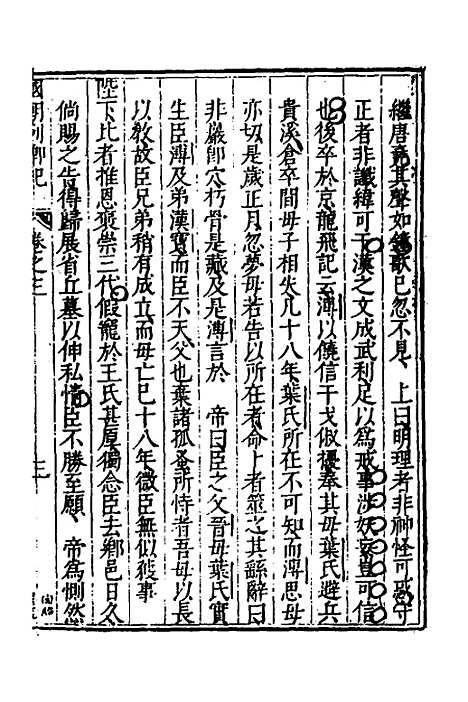 繼唐堯其聲如鐘歌已忽不見上曰明理者非神怪可惑守
正者非讖緯可干漢之文成武利足以爲戒事涉妖妄豈可信
也後卒於京龍飛記云溥以饒信干戈俶擾奉其母葉氏避兵
貴溪倉卒間母子相失凡十八年葉氏所在不可知而溥思母
亦切是歲正月忽夢母若告以所在者命卜者筮之其繇辭曰
非巖卽穴朽骨是藏及是溥言於 帝曰臣之父晉母葉氏實
生臣溥及弟漢寶而臣不天父也棄諸孤蚤所恃者吾母以長
以教故臣兄弟稍有成立而母亡巳十八年微臣無似獲事
陛下比者推恩褒崇三代假寵於王氏甚厚獨念臣去鄉邑日久
倘賜之告得歸展省丘墓以伸私情臣不勝至願 帝爲惻然
國朝列卿紀 卷之三 三